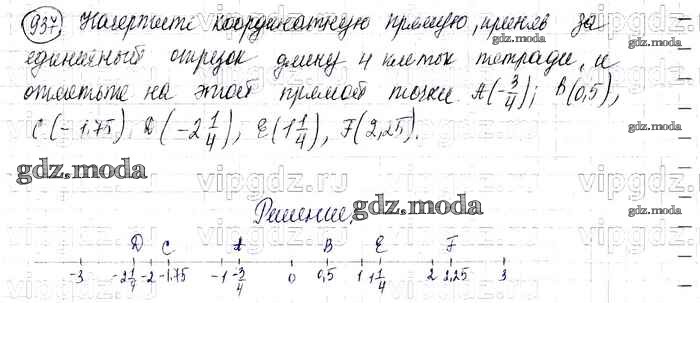 937. Начертите координатную прямую, приняв за
единичный отрезок длину 4 клеток тетради, и
отметьте на этой прямой точки A(-3/4); B(0,5),
C(-1,75) D(-2 1/4), E(1 1/4), F(2,25).
gdz.moda
vipgdz.ru
Решение.
gdz.moda
D C A B E F
-3 -2 1/4 -2 -1,75 -1 -3/4 0 0,5 1 1 1/4 2 2,25 3